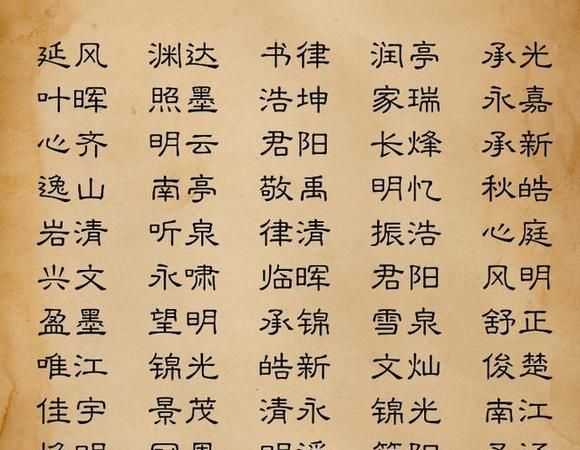 延风 渊达 书律 润亭 承光
叶晖 照墨 浩坤 家瑞 永嘉
心齐 明云 君阳 长烽 承新
逸山 南亭 敬禹 明忆 秋皓
岩清 听泉 律清 振浩 心庭
兴文 永啸 临晖 君阳 风明
盈墨 望明 承锦 雪泉 舒正
唯江 锦光 皓新 文灿 俊楚
佳宇 景茂 清永 锦光 南江